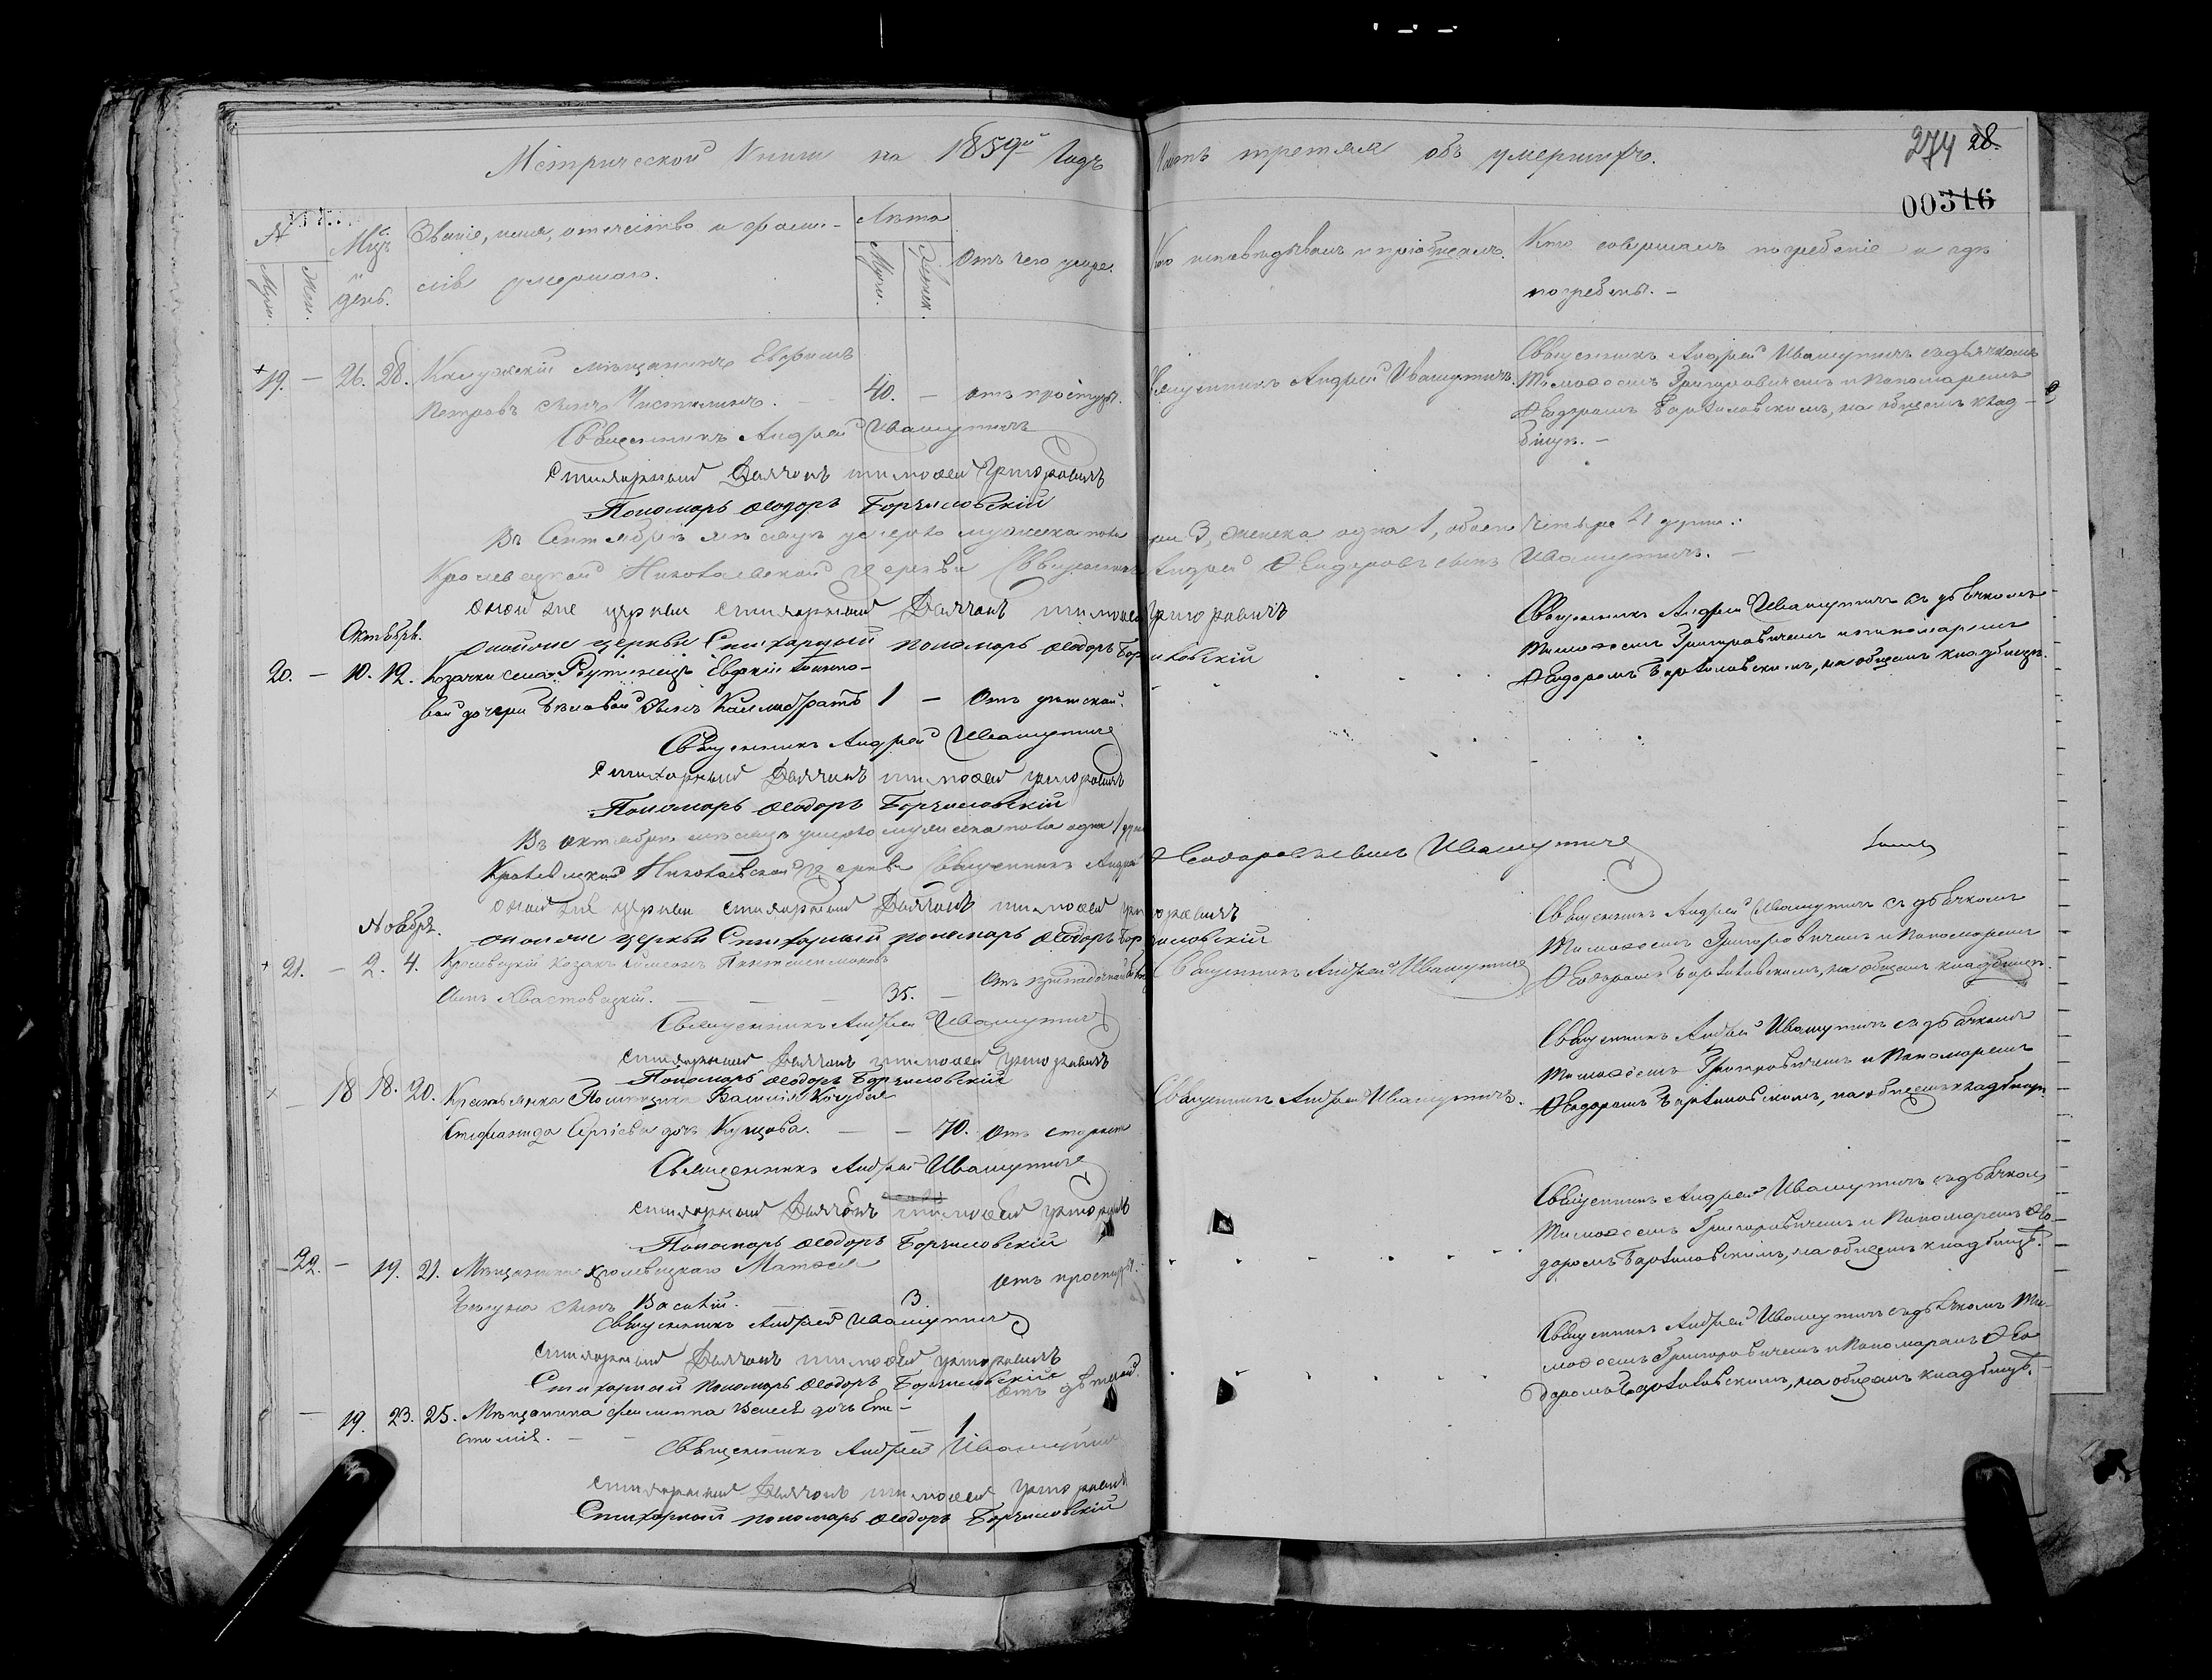 Метрической Книги на 1859й Годъ Часть третья объ умершихъ.
274 28.
00316
№ Мцъ и день. Званіе, имя, отчество и фами-
лія умершаго.
Муж. Жен.
Лѣта
Муж. Женск.
Отъ чего умре.
Кто исповѣдывалъ и пріобщалъ.
Кто совершалъ погребеніе и гдѣ
погребены.
19. — 26. 28. Калужскій мѣщанинъ Ефримъ
Петровъ сынъ Чистилинъ. — 40. — отъ простуды.
Священникъ Андрей Ивашутичъ.
Священникъ Андрей Ивашутичъ съ дьячкомъ
Тимофеемъ Григоровичемъ и Пономаремъ
Ѳеодоромъ Борзиловскимъ, на общемъ клад-
бищѣ. —
Священникъ Андрей Ивашутичъ
Стихарный Дьячокъ Тимоѳей Григоровичъ
Пономарь Ѳеодоръ Борзиловскій
Въ Сентябрѣ мѣсяцѣ умерло мужеска пола три 3, женска одна 1, обоего четыре 4 души.
Кролевецкой Николаевской церкви Священникъ Андрей Ѳеодоровъ сынъ Ивашутичъ. —
оной же церкви стихарный Дьячокъ Тимоѳей Григоровичъ
оной же церкви Стихарный пономарь Ѳеодоръ Борзиловскій
Октябрь.
20. — 10. 12. Козачки села Рутинецъ Евдокіи
вой дочери сынъ Каллистратъ 1 — Отъ дѣтской.
Священникъ Андрей Ивашутичъ съ дьячкомъ
Тимоѳеемъ Григоровичемъ и пономаремъ
Ѳеодоромъ Борзиловскимъ, на общемъ кладбищѣ.
Священникъ Андрей Ивашутичъ
Стихарный Дьячокъ Тимоѳей Григоровичъ
Пономарь Ѳеодоръ Борзиловскій
Въ октябрѣ мѣсяцѣ умерло мужеска пола одна 1 душа
Кролевецкой Николаевской церкви Священникъ Андрей Ѳеодоровъ сынъ Ивашутичъ
оной же церкви стихарный Дьячокъ Тимоѳей Григоровичъ
оной же церкви Стихарный пономарь Ѳеодоръ Борзиловскій
Ноябрь.
21. — 2. 4. Кролевецкій козакъ Симеонъ Пантелеимоновъ
сынъ Хвастовецкій. — — — 35. —
Священникъ Андрей Ивашутичъ
Священникъ Андрей Ивашутичъ съ дьячкомъ
Тимоѳеемъ Григоровичемъ и Пономаремъ
Ѳеодоромъ Борзиловскимъ, на общемъ кладбищѣ.
Священникъ Андрей Ивашутичъ
Стихарный Дьячокъ Тимоѳей Григоровичъ
Пономарь Ѳеодоръ Борзиловскій
— 18 18. 20. Крестьянка Помѣщика Василія Кочубея
Стефанида Сергіева дочь Купцова. — — 70. Отъ старости
Священникъ Андрей Ивашутичъ.
Священникъ Андрей Ивашутичъ съ дьячкомъ
Тимоѳеемъ Григоровичемъ и Пономаремъ
Ѳеодоромъ Борзиловскимъ, на общемъ кладбищѣ.
Священникъ Андрей Ивашутичъ
стихарный Дьячокъ Тимоѳей Григоровичъ
Пономарь Ѳеодоръ Борзиловскій
22. — 19. 21. Мѣщанина Кролевецкаго Матѳея
сынъ Василій. — — 3. Отъ простуды.
Священникъ Андрей Ивашутичъ съ дьячкомъ
Тимоѳеемъ Григоровичемъ и Пономаремъ Ѳео-
доромъ Борзиловскимъ, на общемъ кладбищѣ.
Священникъ Андрей Ивашутичъ
стихарный Дьячокъ Тимоѳей Григоровичъ
Стихарный пономарь Ѳеодоръ Борзиловскій
— 19. 23. 25. Мѣщанина Филиппа дочь
— — 1 отъ дѣтской.
Священникъ Андрей Ивашутичъ съ дьячкомъ Ти-
моѳеемъ Григоровичемъ и Пономаремъ Ѳео-
доромъ Борзиловскимъ, на общемъ кладбищѣ.
Священникъ Андрей Ивашутичъ
стихарный Дьячокъ Тимоѳей Григоровичъ
Стихарный пономарь Ѳеодоръ Борзиловскій